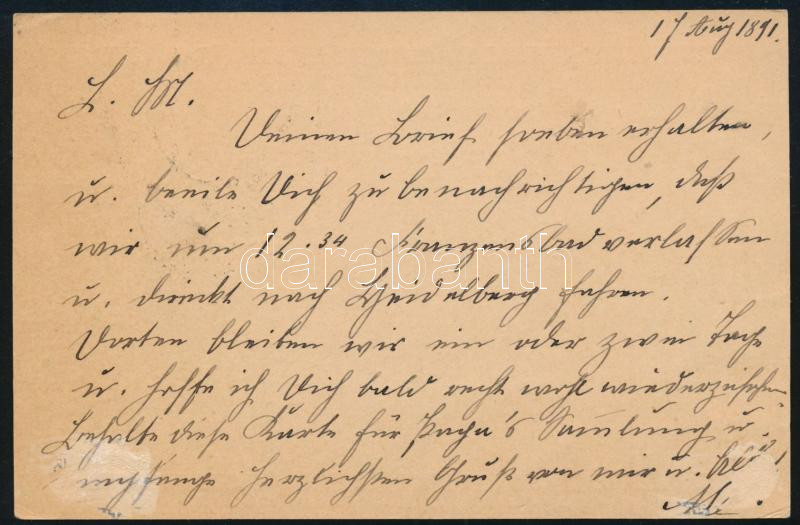 17 Aug 1891.
L. M.
Deinen Brief soeben erhalten,
u. beeile Dich zu benachrichtigen, daß
wir um 12.34 Franzensbad verlassen
darabanth
u. direkt nach Heidelberg fahren.
Dorten bleiben wir ein oder zwei Tage
u. hoffe ich Dich bald recht wohl wiederzusehen
Behalte diese Karte für Sammlung u.
empfange herzlichsten Gruß von mir u.